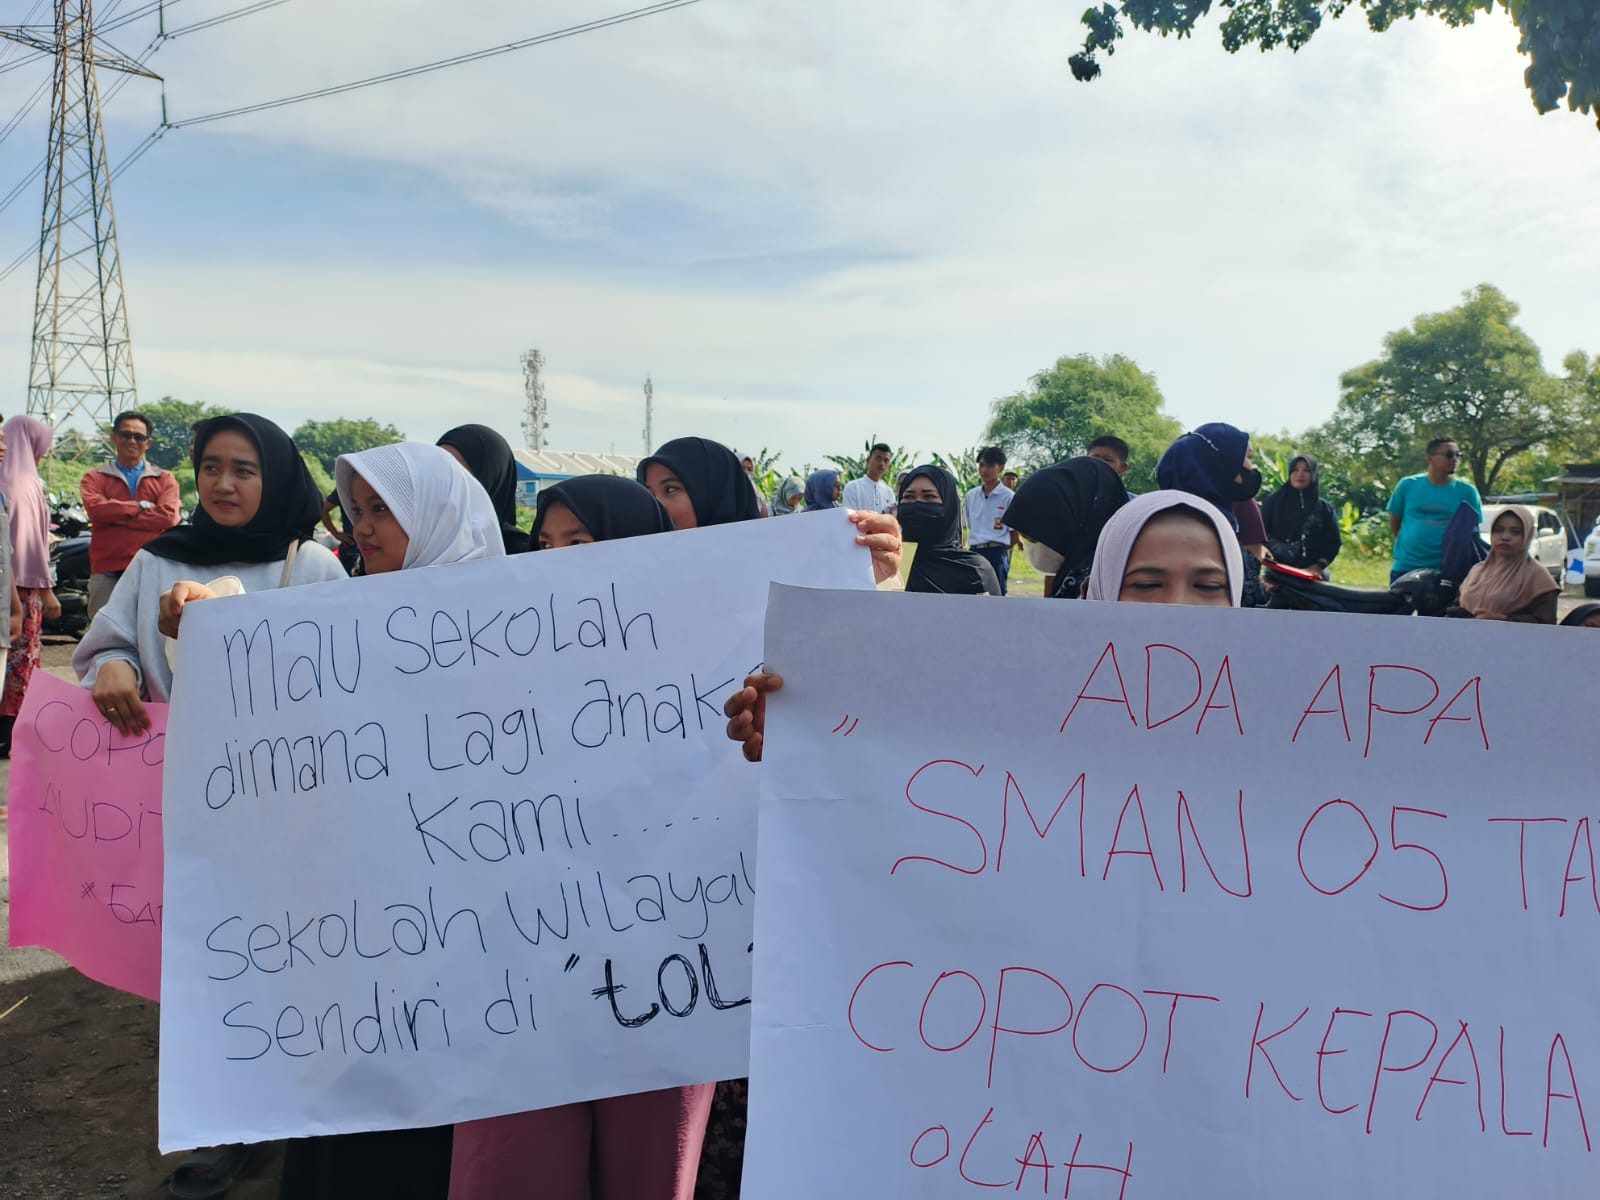 COPO
AUDIT
*
Mau sekolah
dimana lagi anak
kami......
sekolah wilayah
sendiri di "toL
„ ADA APA
SMAN 05 TA
COPOT KEPALA
OLAH